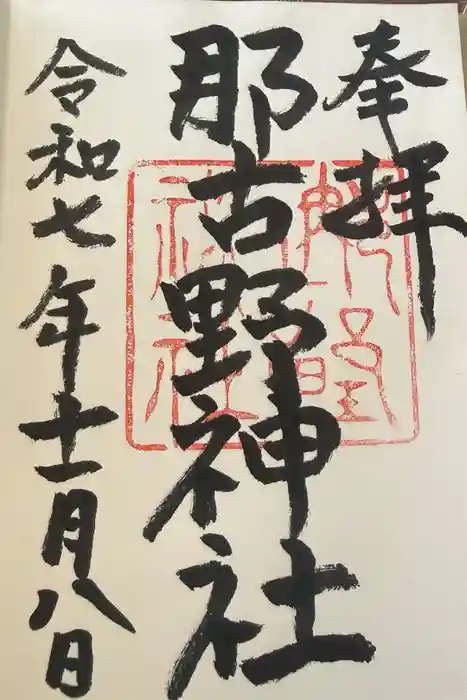 奉拝
那古野神社
令和七年十一月八日